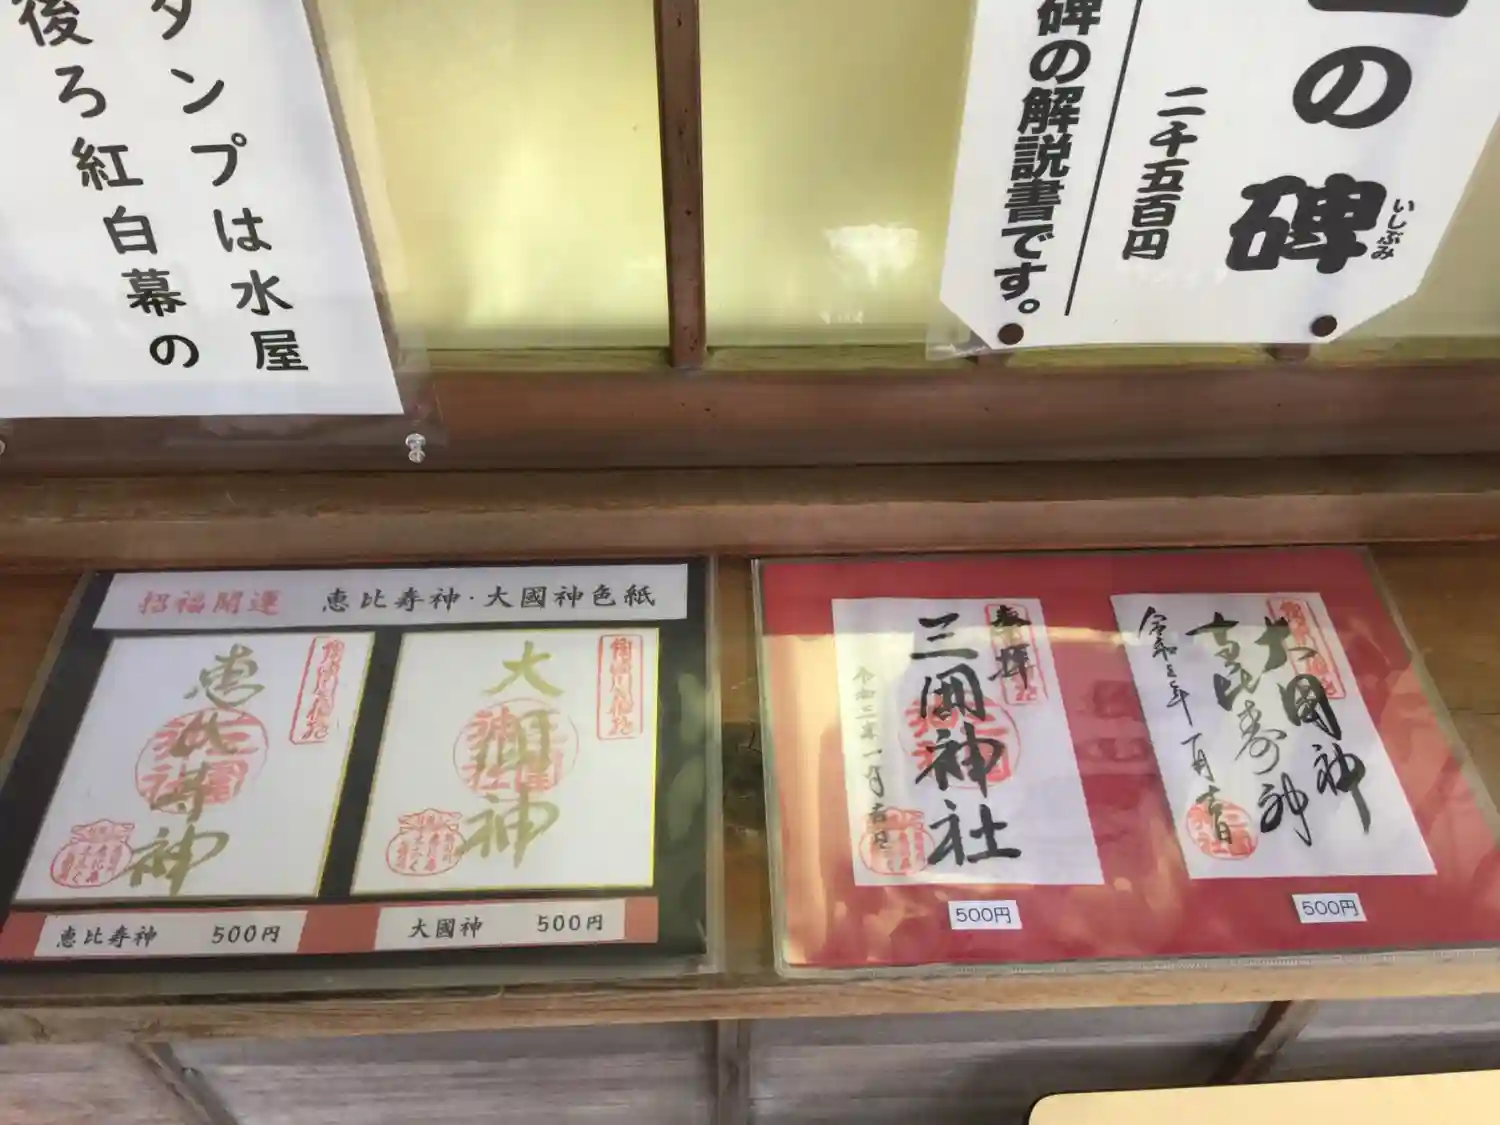 タンプは水屋
後ろ紅白幕の
の碑
いしぶみ
二千五百円
碑の解説書です。
招福開運 恵比寿神・大國神色紙
恵比寿神
大國神
恵比寿神 500円
大國神 500円
奉拝
三囲神社
令和三年一月吉日
500円
大國神
恵比寿神
令和三年一月吉日
500円